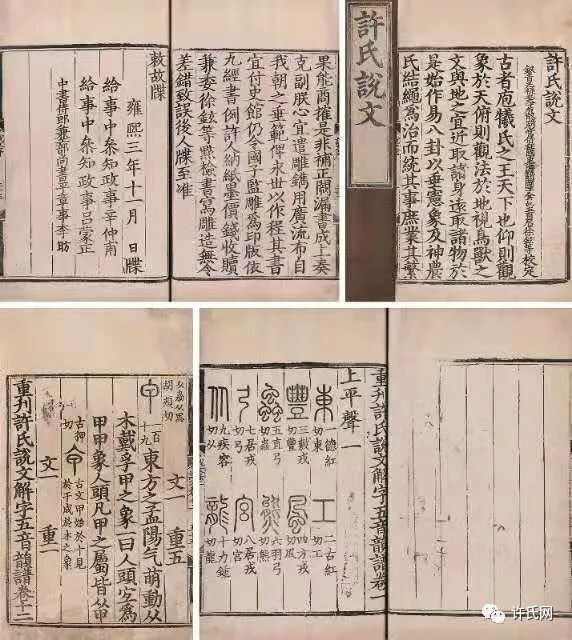 許氏說文
古者庖犧氏之王天下也仰則觀
象於天俯則觀法於地視鳥獸之
文與地之宜近取諸身遠取諸物於
是始作易八卦以垂憲象及神農
氏結繩為治而統其事庶業其繁
許氏說文
果能商搉是非補正闕漏書成上奏
克副朕心宜遣雕鐫用廣流布自
我朝之垂範俾永世以作程其書
宜付史館仍令國子監雕為印版依
九經書例許人納紙墨價錢收贖
兼委徐鉉等點檢書寫雕造無令
差錯致誤後人牒至准
敕故牒
雍熙三年十一月 日牒
給事中叅知政事辛仲甫
給事中叅知政事呂蒙正
中書侍郎兼工部尚書平章事李昉
重刊許氏說文解字五音韻譜卷一
上平聲一
東 一德紅切東 工 二古紅切工
豐 三敷戎切豐 風 四方戎切風
蟲 五直弓切蟲 熊 六羽弓切熊
弓 七居戎切弓 宮 八居戎切宮
九疾容切从 龍 十力鍾切龍
胡頰切
文一 重五
甲 一百十九 東方之孟陽气萌動从
木戴孚甲之象一曰人頭空為
甲甲象人頭凡甲之屬皆从甲
古狎切 古文甲始於十見於千成於木之象
文一 重一
重刊許氏說文解字五音韻譜卷十二
许氏网